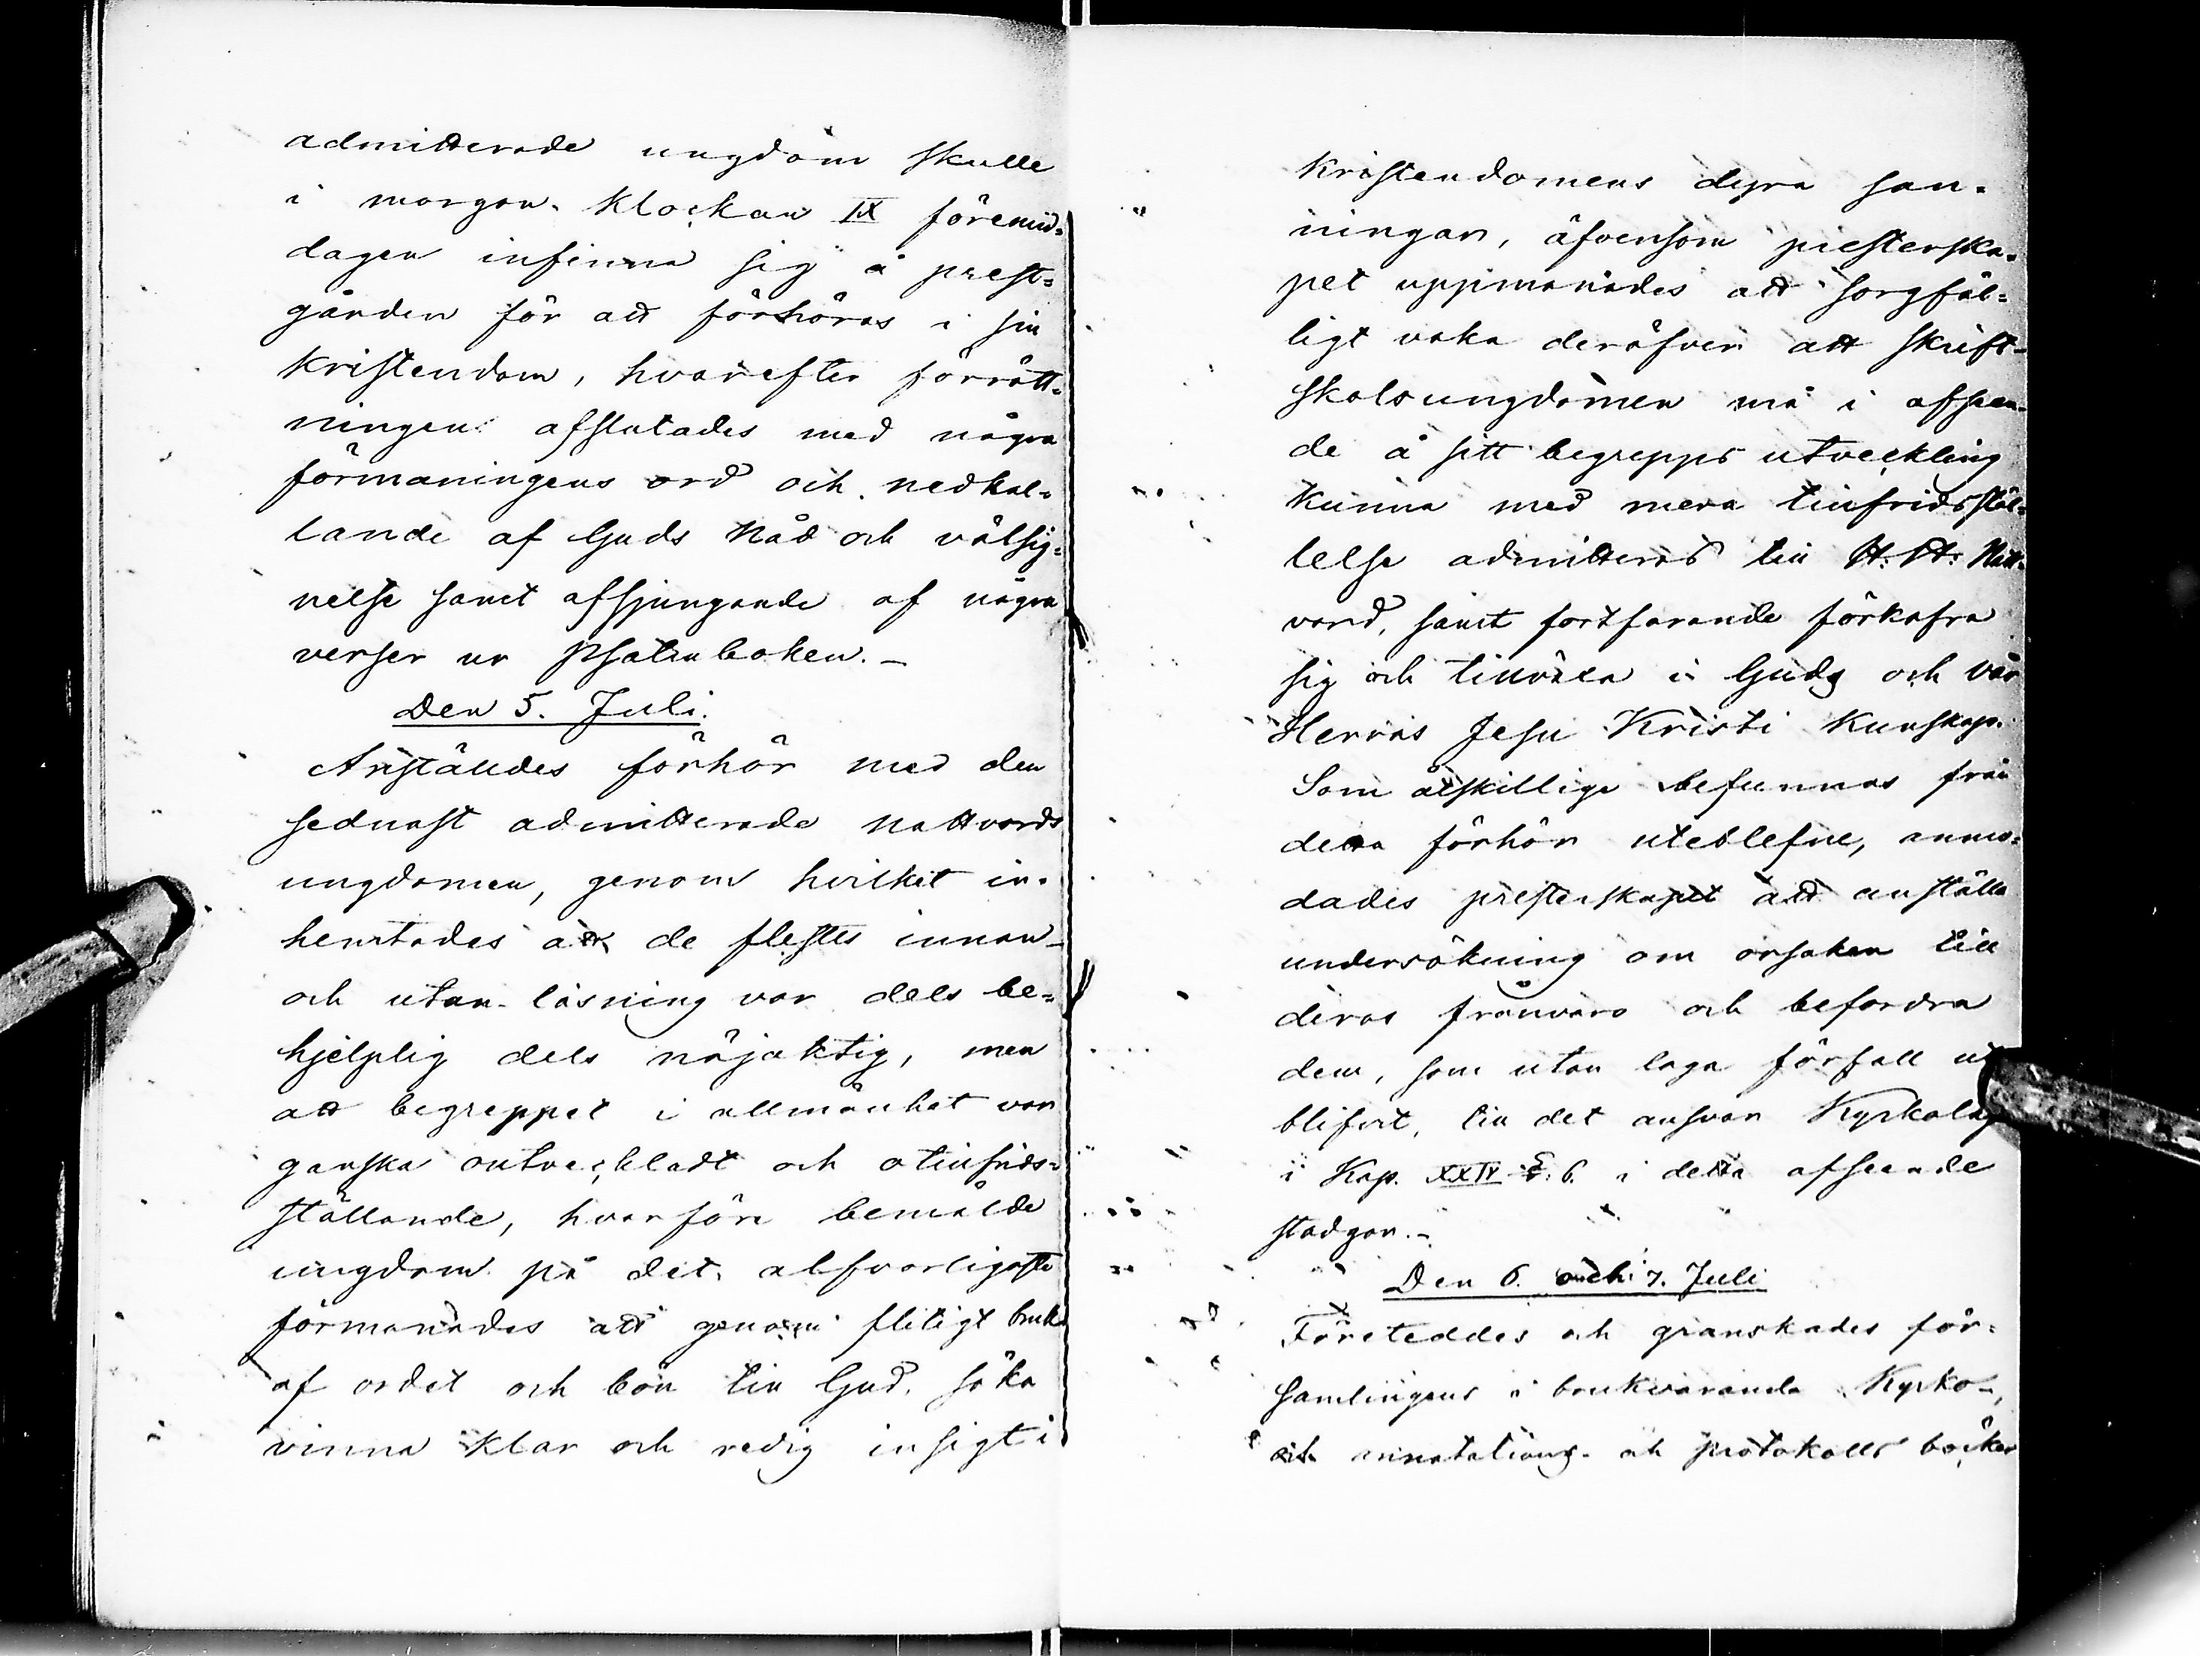 admitterade ungdom skulle
i morgon klockan IX förmid=
dagen infinna sig å prest=
gården för att förhöras i sin
kristendom, hvarefter förrätt=
ningen afslutades med några
förmaningens ord och nedkal=
lande af Guds Nåd och välsig=
nelse samt afsjungande af några
verser ur Psalmboken. –
Den 5. Juli.
Anställdes förhör med den
sednast admitterade nattvards
ungdomen, genom hvilket in=
hemtades att de flestes innan-
och utan-läsning var dels be=
hjelplig dels nöjaktig, men
att begreppet i allmänhet var
ganska outveckladt och otillfrids=
ställande, hvarföre bemälde
ungdom på det alfvarligaste
förmanades att genom flitigt bruk
af ordet och bön till Gud, söka
vinna klar och redig insigt i
kristendomens dyra san=
ningar, äfvensom presterska=
pet uppmanades att sorgfäl=
ligt vaka deröfver att skrift=
skolsungdomen må i afseen=
de å sitt begrepps utveckling
kunna med mera tillfridsstäl=
lelse admitteras till H. H. Natt=
vard, samt fortfarande förkofra
sig och tillväxa i Guds och vår
Herras Jesu Kristi kunskap.
Som åtskillige befunnos från
detta förhör uteblefne, anmo=
dades presterskapet att anställa
undersökning om orsaken till
deras frånvaro och befordra
dem, som utan laga förfall ute
blifvit, till det ansvar Kyrkolag
i Kap. XXIV §. 6. i detta afseende
stadgar. –
Den 6. och 7. Juli
Företeddes och granskades för=
samlingens i brukvarande Kyrko-,
och annotations- och protokolls böcker